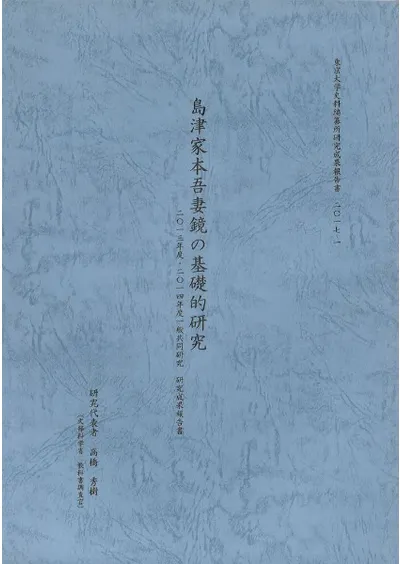 東京大学史料編纂所研究成果報告書 二〇一七-一
島津家本吾妻鏡の基礎的研究
二〇一三年度・二〇一四年度一般共同研究 研究成果報告書
研究代表者 高橋 秀樹
（文部科学省 教科書調査官）